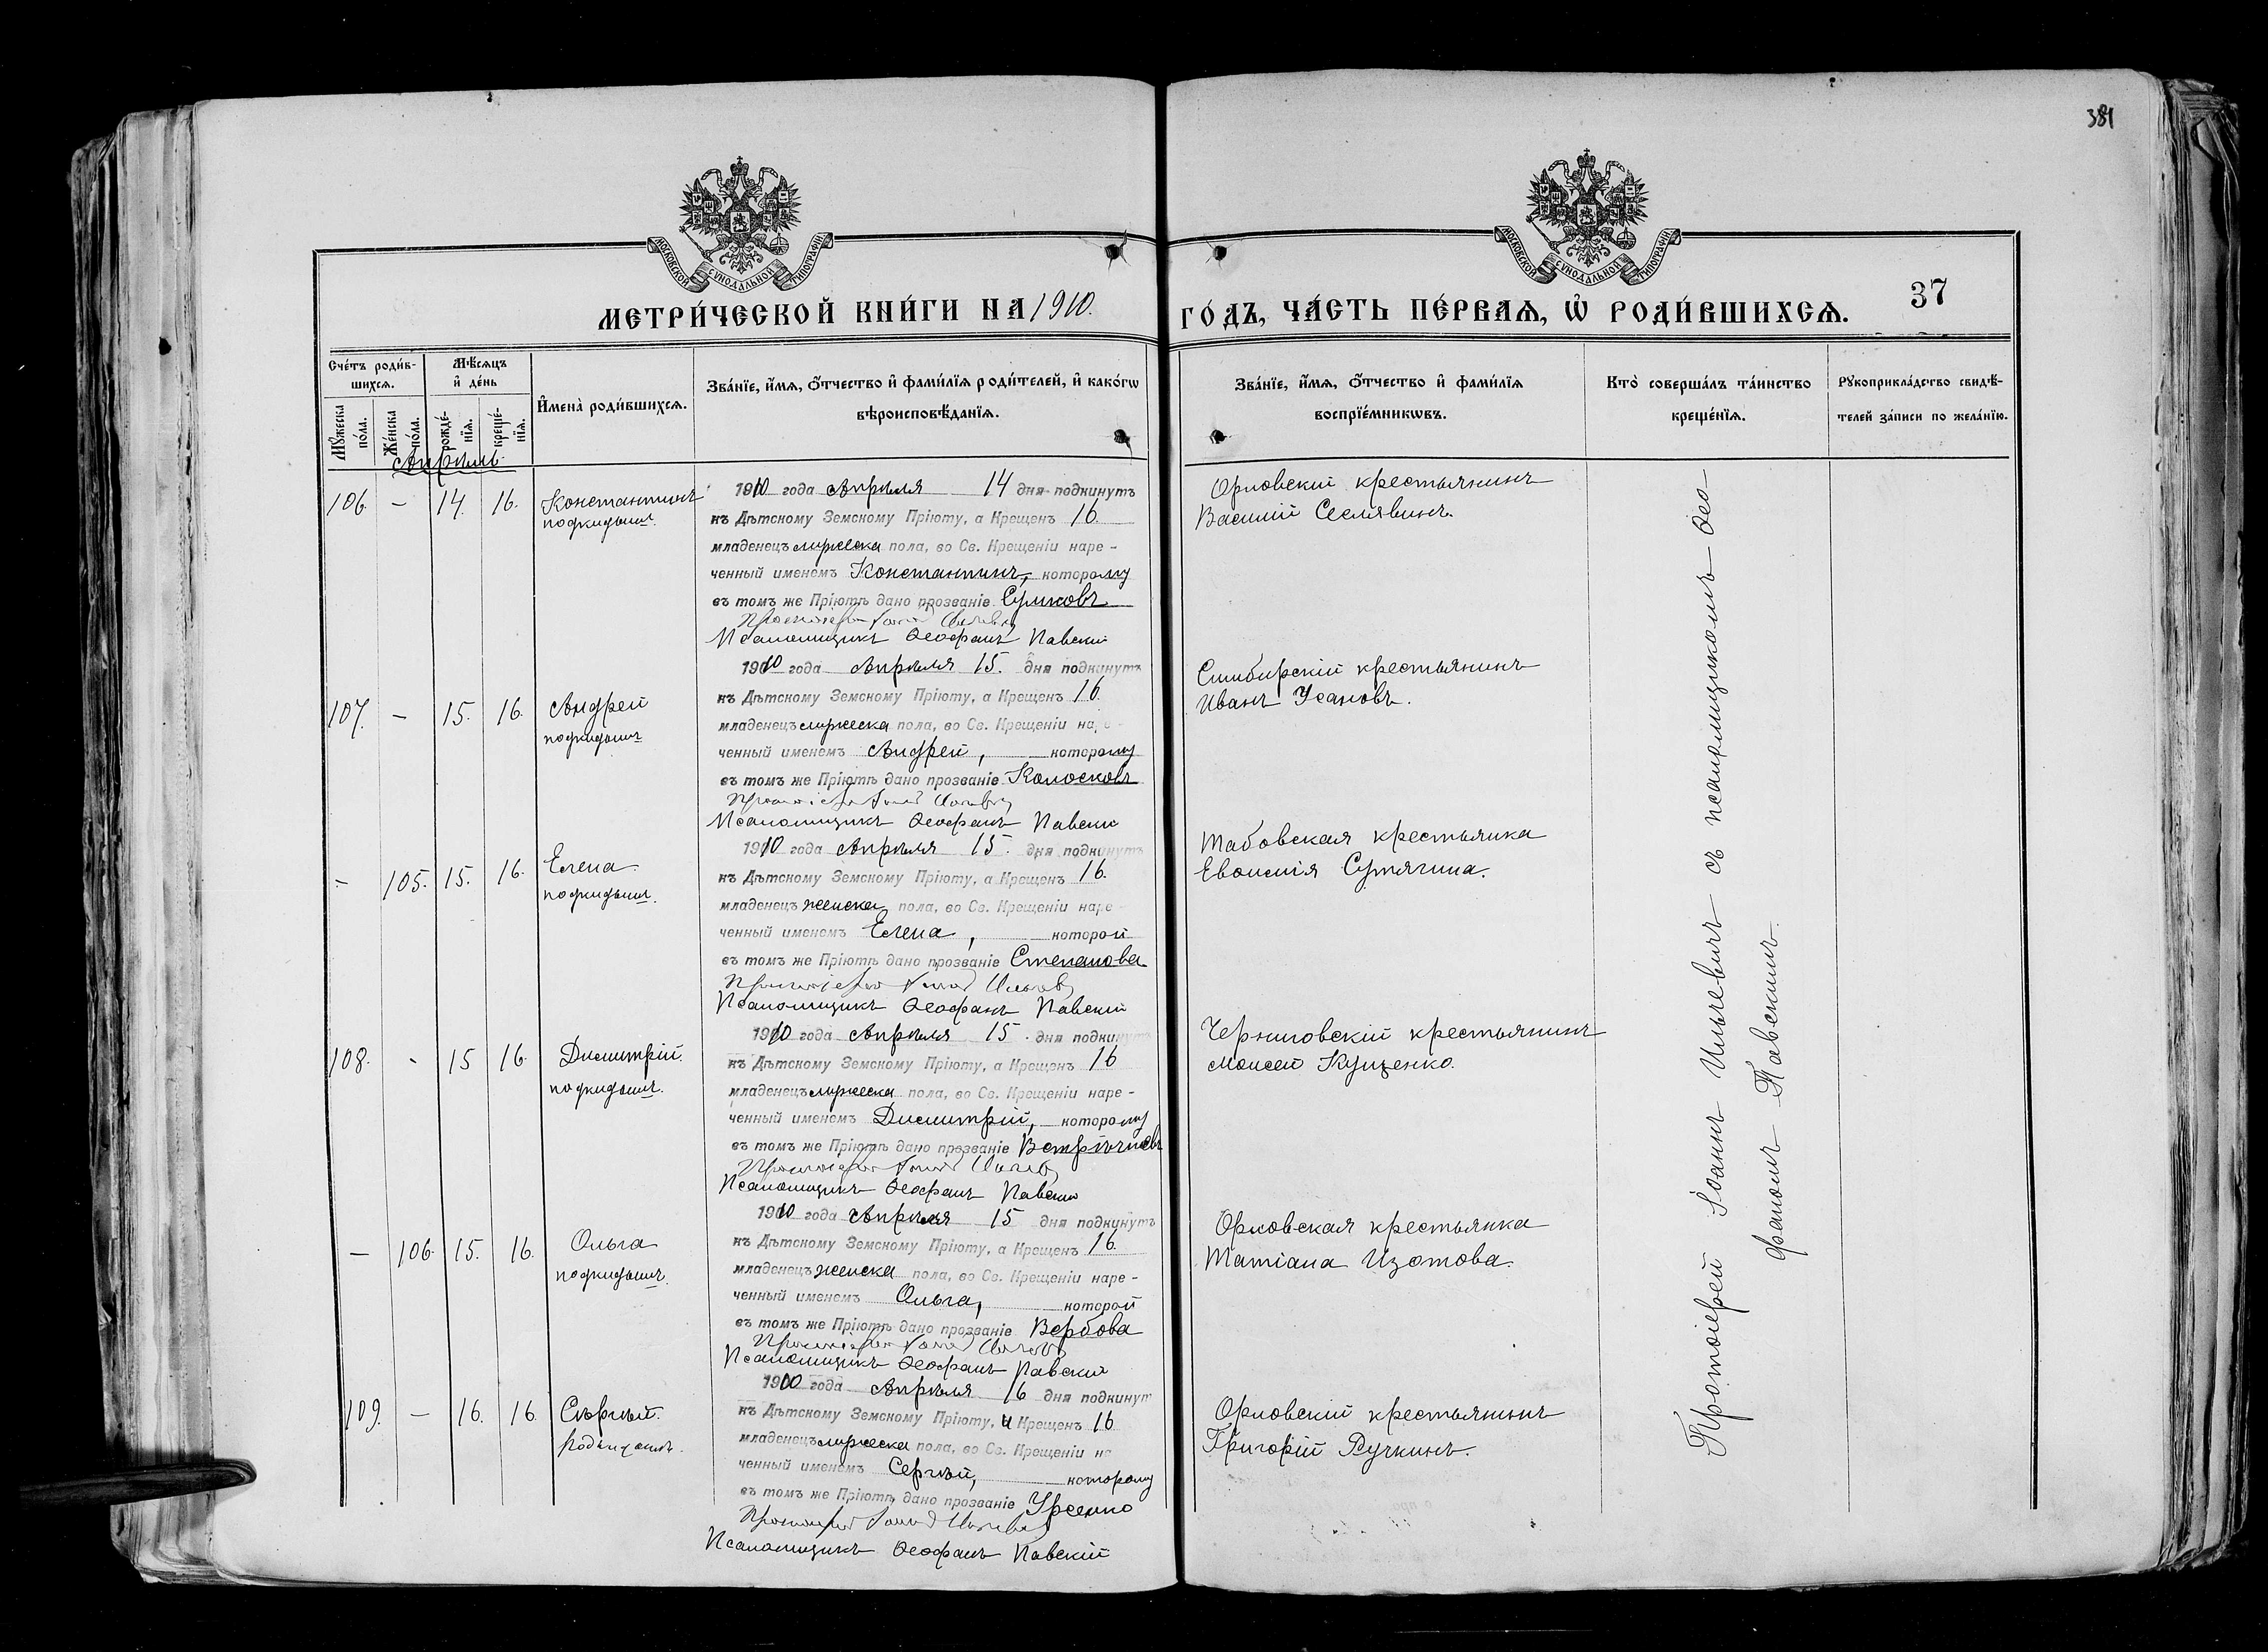 381
МОСКОВСКОЙ СѴНОДАЛЬНОЙ ТИПОГРАФІИ
МОСКОВСКОЙ СѴНОДАЛЬНОЙ ТИПОГРАФІИ
МЕТРИ́ЧЕСКОЙ КНИ́ГИ НА 1910.
ГО́ДЪ, ЧА́СТЬ ПЕ́РВАѦ, Ѡ҆ РОДИ́ВШИХСѦ.
37
Сче́тъ роди́вшихсѧ.
Мꙋ́жеска по́ла.
Же́нска по́ла.
Мѣ́сѧцъ и҆ де́нь
рожде́нїѧ.
креще́нїѧ.
И҆мена̀ роди́вшихсѧ.
Зва́нїе, и҆́мѧ, ѻ҆́тчество и҆ фами́лїѧ роди́телей, и҆ како́гѡ
вѣроисповѣ́данїѧ.
Зва́нїе, и҆́мѧ, ѻ҆́тчество и҆ фами́лїѧ
воспрїе́мникѡвъ.
Кто̀ соверша́лъ та́инство
креще́нїѧ.
Рꙋкоприкла́дство свидѣ́-
телей за́писи по жела́нїю.
Апрѣль
106. - 14. 16. Константинъ
подкидышъ.
1910 года Апрѣля 14 дня подкинутъ
къ Дѣтскому Земскому Пріюту, а Крещенъ 16.
младенецъ мужеска пола, во Св. Крещеніи наре-
ченный именемъ Константинъ, которому
въ томъ же Пріютѣ дано прозваніе
Псаломщикъ Ѳеофанъ Павскій
Орловскій крестьянинъ
Василій Селявинъ.
107. - 15. 16. Андрей
подкидышъ
1910 года Апрѣля 15. дня подкинутъ
къ Дѣтскому Земскому Пріюту, а Крещенъ 16.
младенецъ мужеска пола, во Св. Крещеніи наре-
ченный именемъ Андрей, которому
въ томъ же Пріютѣ дано прозваніе Колосковъ
Псаломщикъ Ѳеофанъ Павскій
Симбирскій крестьянинъ
Иванъ Усановъ.
- 105. 15. 16. Елена
подкидышъ.
1910 года Апрѣля 15. дня подкинутъ
къ Дѣтскому Земскому Пріюту, а Крещенъ 16.
младенецъ женска пола, во Св. Крещеніи наре-
ченный именемъ Елена, которой
въ томъ же Пріютѣ дано прозваніе Степанова
Псаломщикъ Ѳеофанъ Павскій
крестьянка
Сутягина.
108. - 15 16 Димитрій.
подкидышъ.
1910 года Апрѣля 15. дня подкинутъ
къ Дѣтскому Земскому Пріюту, а Крещенъ 16
младенецъ мужеска пола, во Св. Крещеніи наре-
ченный именемъ Димитрій, которому
въ томъ же Пріютѣ дано прозваніе
Псаломщикъ Ѳеофанъ Павскій
Черниговскій крестьянинъ
Моисей Куценко.
- 106. 15. 16. Ольга
подкидышъ.
1910 года Апрѣля 15 дня подкинутъ
къ Дѣтскому Земскому Пріюту, а Крещенъ 16.
младенецъ женска пола, во Св. Крещеніи наре-
ченный именемъ Ольга, которой
въ томъ же Пріютѣ дано прозваніе Вербова
Псаломщикъ Ѳеофанъ Павскій
Орловская крестьянка
Матіана Изотова.
109. - 16. 16. Сѣргѣй.
подкидышъ.
1910 года Апрѣля 16 дня подкинут
къ Дѣтскому Земскому Пріюту, и Крещенъ 16
младенецъ мужеска пола, во Св. Крещеніи на
ченный именемъ Сергѣй, которому
въ томъ же Пріютѣ дано прозваніе
Псаломщикъ Ѳеофанъ Павскій
Орловскій крестьянинъ
Григорій Ручкинъ.
Протоіерей Іоаннъ Ильевичъ съ псаломщикомъ Ѳео-
фаномъ Павскимъ.